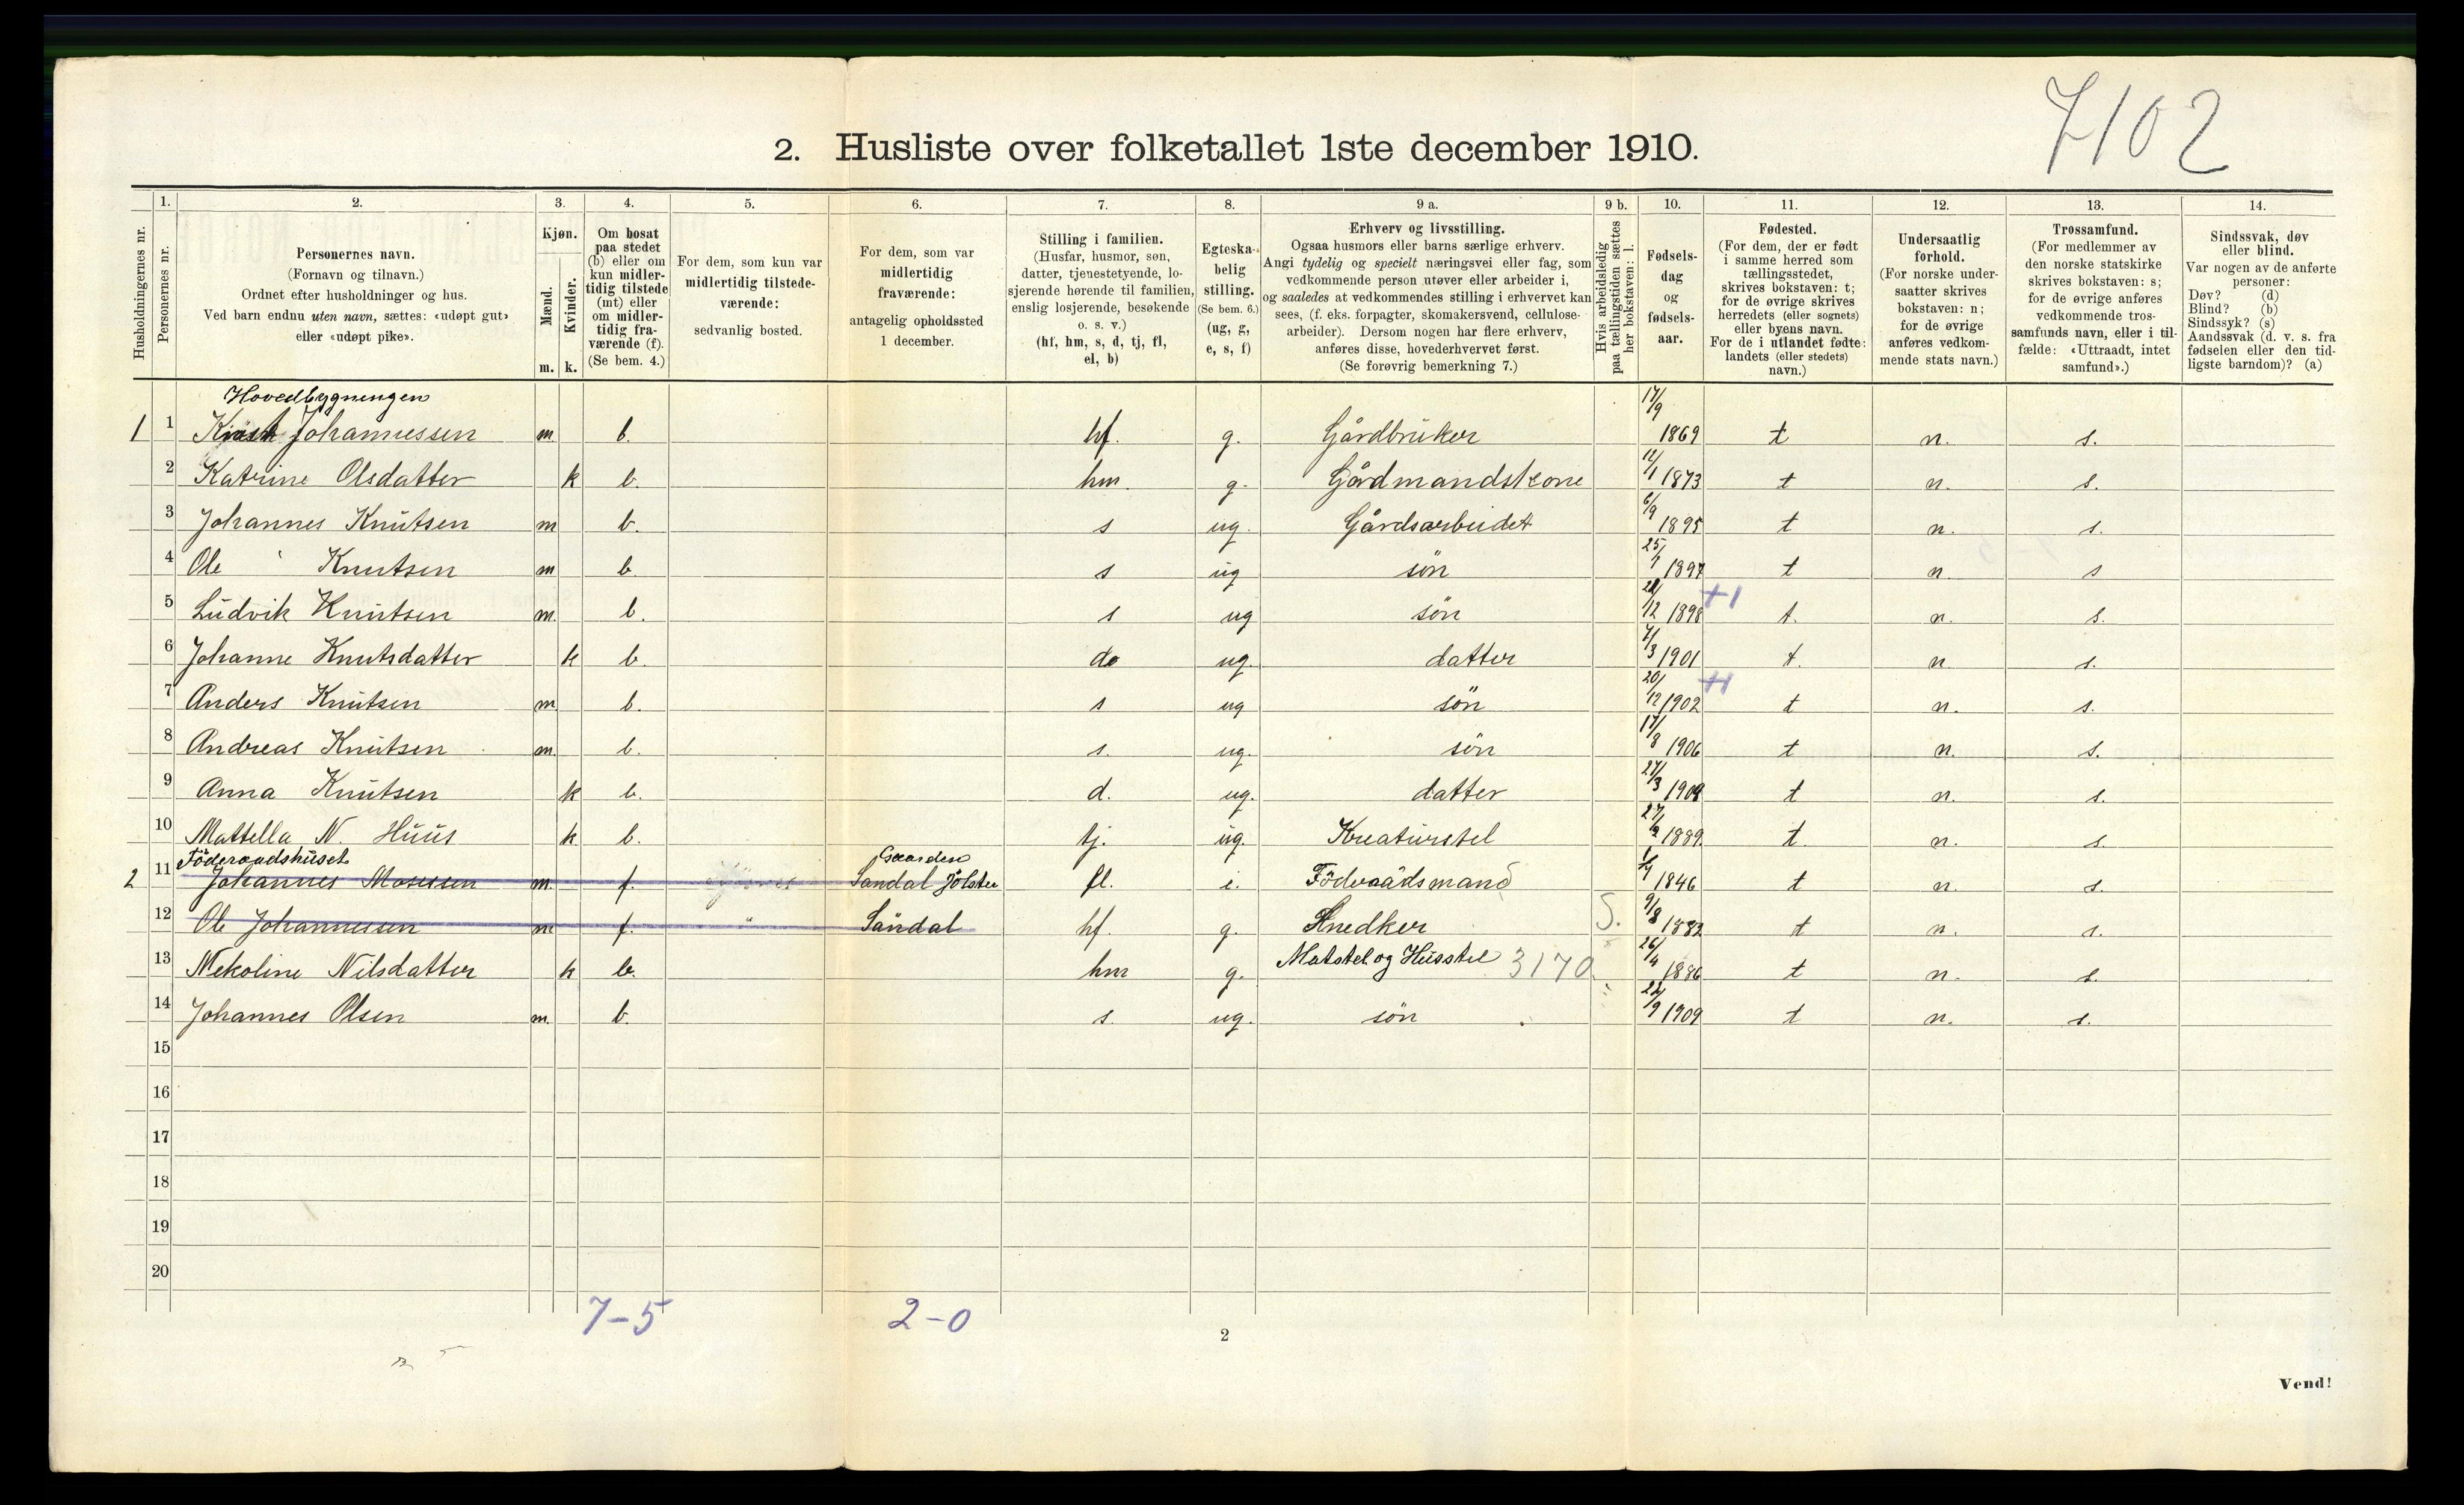 7102
2. Husliste over folketallet 1ste december 1910.
Husholdningernes nr.
1.
Personernes nr.
2.
Personernes navn.
(Fornavn og tilnavn.)
Ordnet efter husholdninger og hus.
Ved barn endnu uten navn, sættes: «udøpt gut»
eller «udøpt pike».
3.
Kjøn.
Mænd.
Kvinder.
m. k.
4.
Om bosat
paa stedet
(b) eller om
kun midler-
tidig tilstede
(mt) eller
om midler-
tidig fra-
værende (f).
(Se bem. 4.)
5.
For dem, som kun var
midlertidig tilstede-
værende:
sedvanlig bosted.
6.
For dem, som var
midlertidig
fraværende:
antagelig opholdssted
1 december.
7.
Stilling i familien.
(Husfar, husmor, søn,
datter, tjenestetyende, lo-
sjerende hørende til familien,
enslig losjerende, besøkende
o. s. v.)
(hf, hm, s, d, tj, fl,
el, b)
8.
Egteska-
belig
stilling.
(Se bem. 6.)
(ug, g,
e, s, f)
9 a.
Erhverv og livsstilling.
Ogsaa husmors eller barns særlige erhverv.
Angi tydelig og specielt næringsvei eller fag, som
vedkommende person utøver eller arbeider i,
og saaledes at vedkommendes stilling i erhvervet kan
sees, (f. eks. forpagter, skomakersvend, cellulose-
arbeider). Dersom nogen har flere erhverv,
anføres disse, hovederhvervet først.
(Se forøvrig bemerkning 7.)
9 b.
Hvis arbeidsledig
paa tællingstiden sættes
her bokstaven: l.
10.
Fødsels-
dag
og
fødsels-
aar.
11.
Fødested.
(For dem, der er født
i samme herred som
tællingsstedet,
skrives bokstaven: t;
for de øvrige skrives
herredets (eller sognets)
eller byens navn.
For de i utlandet fødte:
landets (eller stedets)
navn.)
12.
Undersaatlig
forhold.
(For norske under-
saatter skrives
bokstaven: n;
for de øvrige
anføres vedkom-
mende stats navn.)
13.
Trossamfund.
(For medlemmer av
den norske statskirke
skrives bokstaven: s;
for de øvrige anføres
vedkommende tros-
samfunds navn, eller i til-
fælde: «Uttraadt, intet
samfund».)
14.
Sindssvak, døv
eller blind.
Var nogen av de anførte
personer:
Døv? (d)
Blind? (b)
Sindssyk? (s)
Aandssvak (d. v. s. fra
fødselen eller den tid-
ligste barndom)? (a)
Hovedbygningen
1 1 Johannessen m b. hf. g. Gårdbruker 17/9 1869 t n. s.
2 Katrine Olsdatter k b. hm. g. Gårdmandskone 12/1 1873 t n. s.
3 Johannes Knutsen m b. s ug. Gårdsarbeidet 6/9 1895 t n. s.
4 Ole Knutsen m b. s ug søn 25/1 1897 t n. s
5 Ludvik Knutsen m. b. s ug søn /12 1898 t. n. s.
6 Johanne Knutsdatter k b. do ug. datter 7/3 1901 t. n. s.
7 Anders Knutsen m. b. s ug søn 20/12 1902 t n. s.
8 Andreas Knutsen m. b. s. ug. søn 17/8 1906 t n. s.
9 Anna Knutsen k b. d. ug. datter 27/3 t n. s.
10 Mattella N. Huus k. b. tj. ug. Kreaturstel 1889 t. n. s.
Föderaadshuset Gaarden
2 11 Johannes Mosessen m. f. Sandal Jölster fl. e. Föderaadsmand 1846 t n. s.
12 Ole Johannessen m f. " Sandal hf. g. Snedker S. 9/8 1882 t n. s.
13 Nekoline Nilsdatter k b. hm g. Matstel og Husstel 3170 26/4 1886 t n. s.
14 Johannes Olsen m. b. s. ug. søn 1909 t n. s.
15
16
17
18
19
20
7-5 2-0
2
Vend!